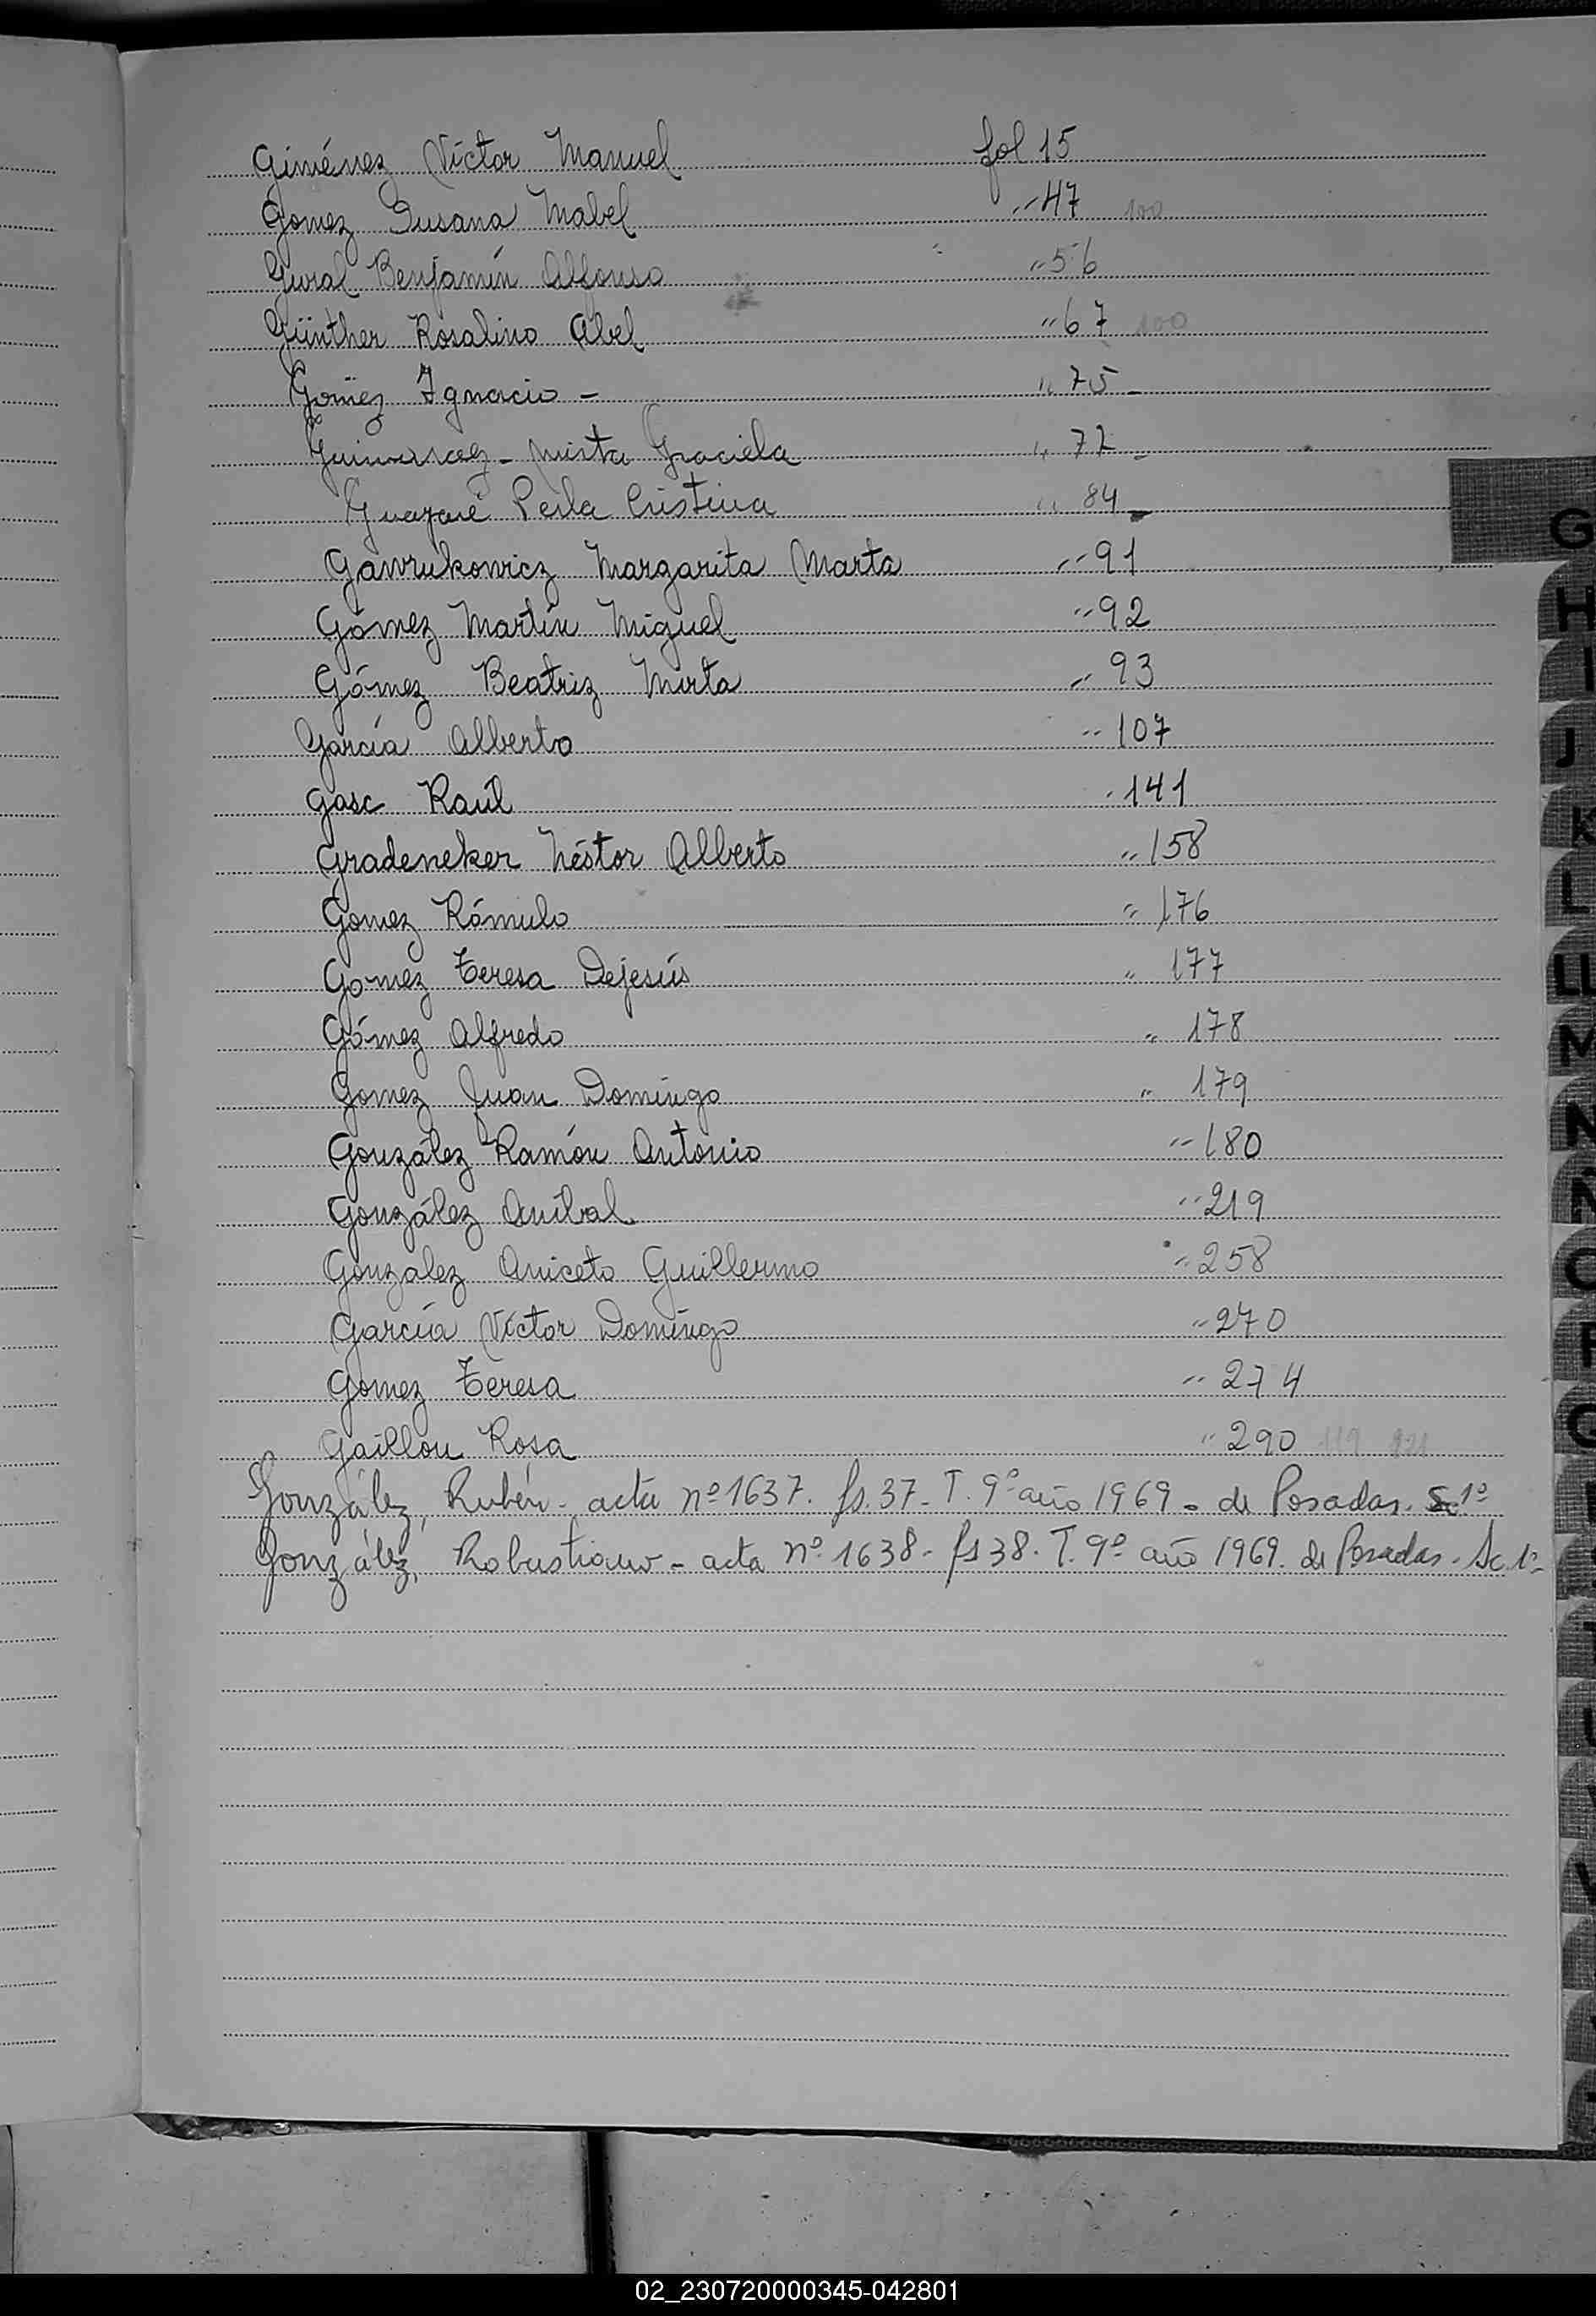 Giménez Víctor Manuel fol 15
Gomez Susana Mabel " 47 100
Gural Benjamín Alfonso " 56
Günther Rosalino Abel " 67 100
Goméz Ignacio - " 75 -
Graciela " 77 -
Perla Cristina " 84 -
Gawrukowicz Margarita Marta " 91
Gómez Martín Miguel " 92
Gómez Beatriz Mirta " 93
García Alberto " 107
Gasc Raúl " 141
Gradeneker Néstor Alberto " 158
Gomez Rómulo " 176
Gomez Teresa Dejesús " 177
Gómez Alfredo " 178
Gomez Juan Domingo " 179
González Ramón Antonio " 180
González Aníbal " 219
Gonzalez Aniceto Guillermo " 258
García Víctor Domingo " 270
Gomez Teresa " 274
Gaillou Rosa " 290 119
González, Rubén - acta nº 1637. fs. 37 - T. 9º año 1969 - de Posadas. Sc 1º
González, Robustiano - acta nº 1638 - fs 38. T. 9º año 1969. de Posadas. Sc. 1º
G
H
I
J
K
L
LL
M
N
Ñ
O
P
02_230720000345-042801